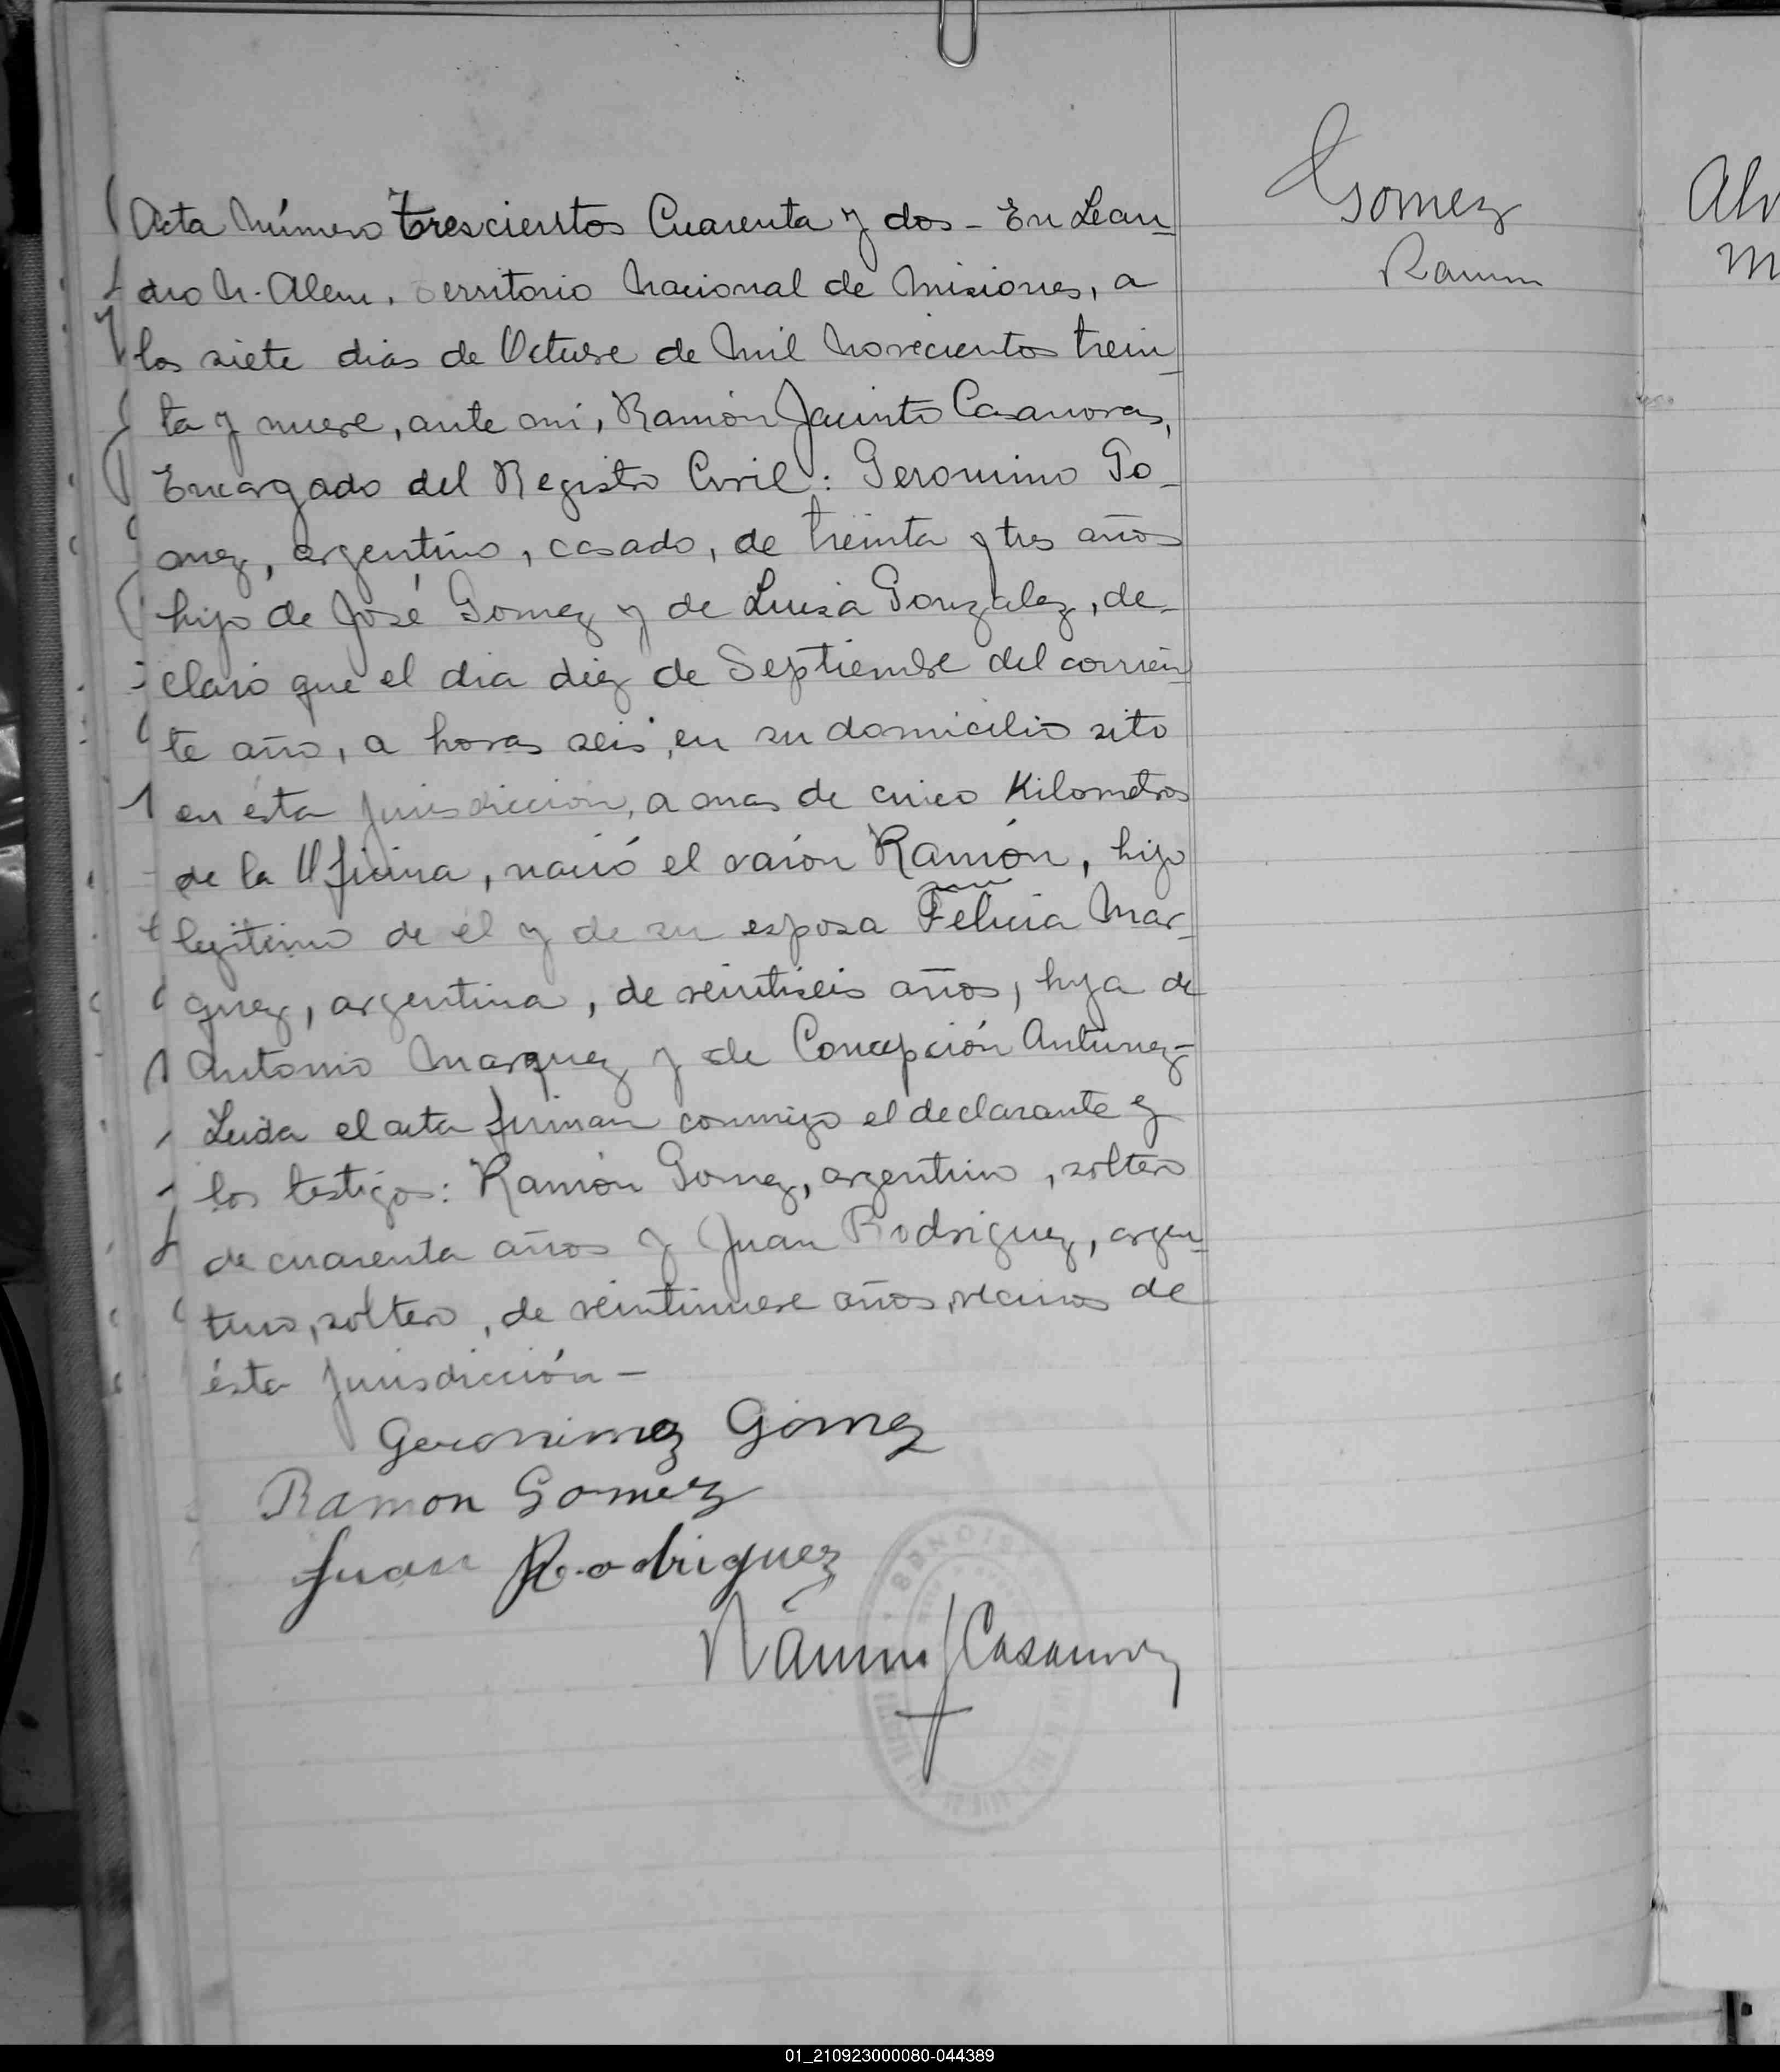 Gomez
Ramon
Alv
M
Acta Número Trescientos Cuarenta y dos - En Lean-
dro N. Alem, Territorio Nacional de Misiones, a
los siete dias de Octubre de Mil Novecientos trein-
ta y nueve, ante mi, Ramón Jacinto Casanovas,
Encargado del Registro Civil: Geronimo Go-
mez, argentino, casado, de treinta y tres años
hijo de José Gomez y de Luisa Gonzalez, de-
claró que el dia diez de Septiembre del corrien-
te año, a horas seis, en su domicilio sito
en ésta Jurisdicción, a mas de cinco Kilometros
de la Oficina, nació el varón Ramón, hijo
legitimo de él y de su esposa Felicia Mar-
quez, argentina, de veintiseis años, hija de
Antonio Marquez y de Concepción Antunez-
Leida el acta firman conmigo el declarante y
los testigos: Ramón Gomez, argentino, soltero
de cuarenta años y Juan Rodriguez, argen-
tino, soltero, de veintinueve años, vecinos de
ésta Jurisdicción-
Geronimo Gomez
Ramon Gomez
Juan Rodriguez
Ramon J Casanovas
01_210923000080-044389